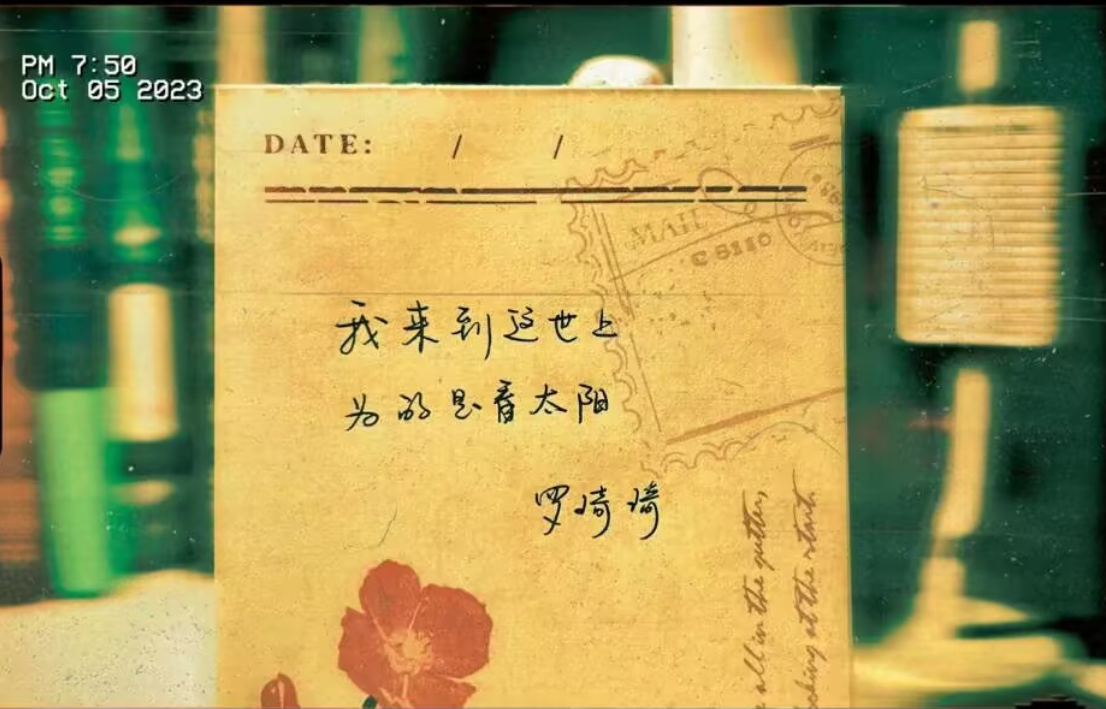 PM 7:50
Oct 05 2023
DATE: / /
MAIL
我来到这世上
为的是看太阳
罗琦琦
all in the gutter,
at the start.